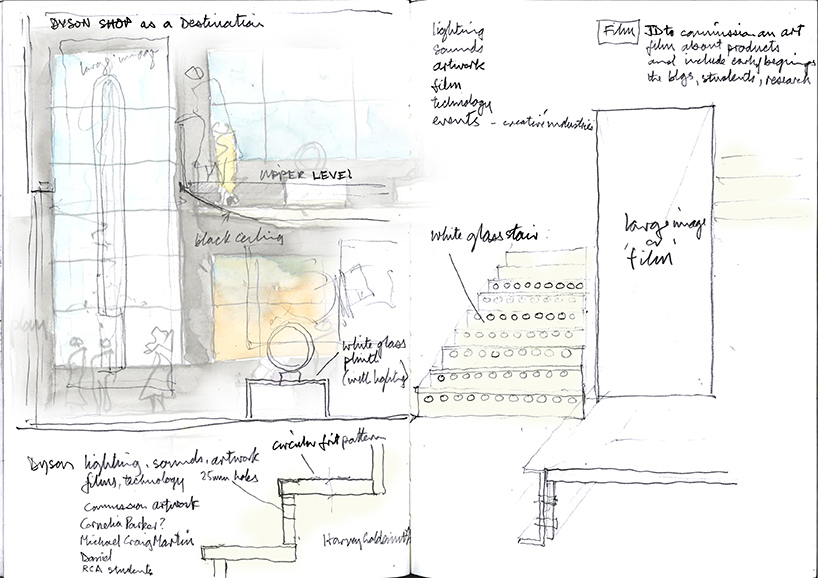 DYSON SHOP as a Destination
large image
UPPER LEVEL
black ceiling
white glass
plinth
(with lighting)
circular frit pattern
25mm holes
Dyson lighting, sounds, artwork
films, technology
Commission artwork
Cornelia Parker?
Michael Craig Martin
Daniel
RCA students
Harvey Goldsmith
lighting
sounds
artwork
film
technology
events - creative industries
Film
JD to commission an art
film about products
and include early beginings
the blgs, students, research
white glass stair
large image
or
'film'